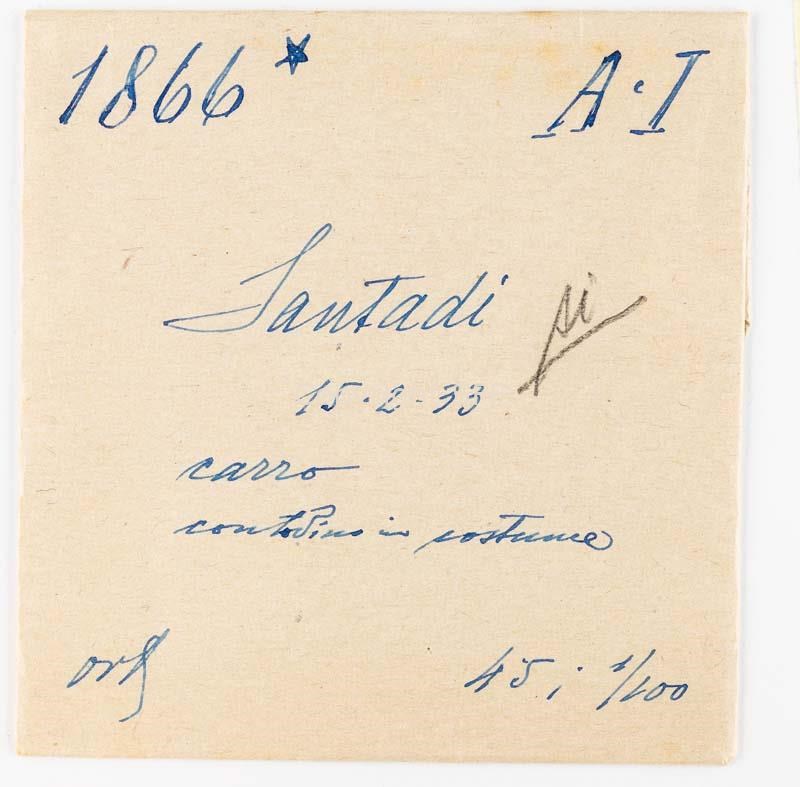 1866* A·I
Santadi si
15·2·33
carro
contadino in costume
45; 1/100